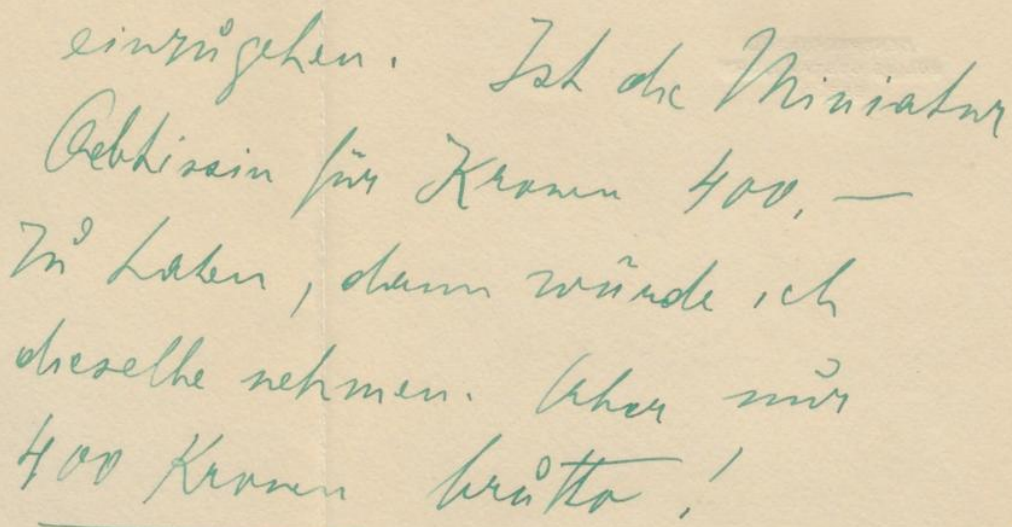 einzugehen. Ist die Miniatur
Aebtissin für Kronen 400,—
zu haben, dann würde ich
dieselbe nehmen. Aber nur
400 Kronen brutto!